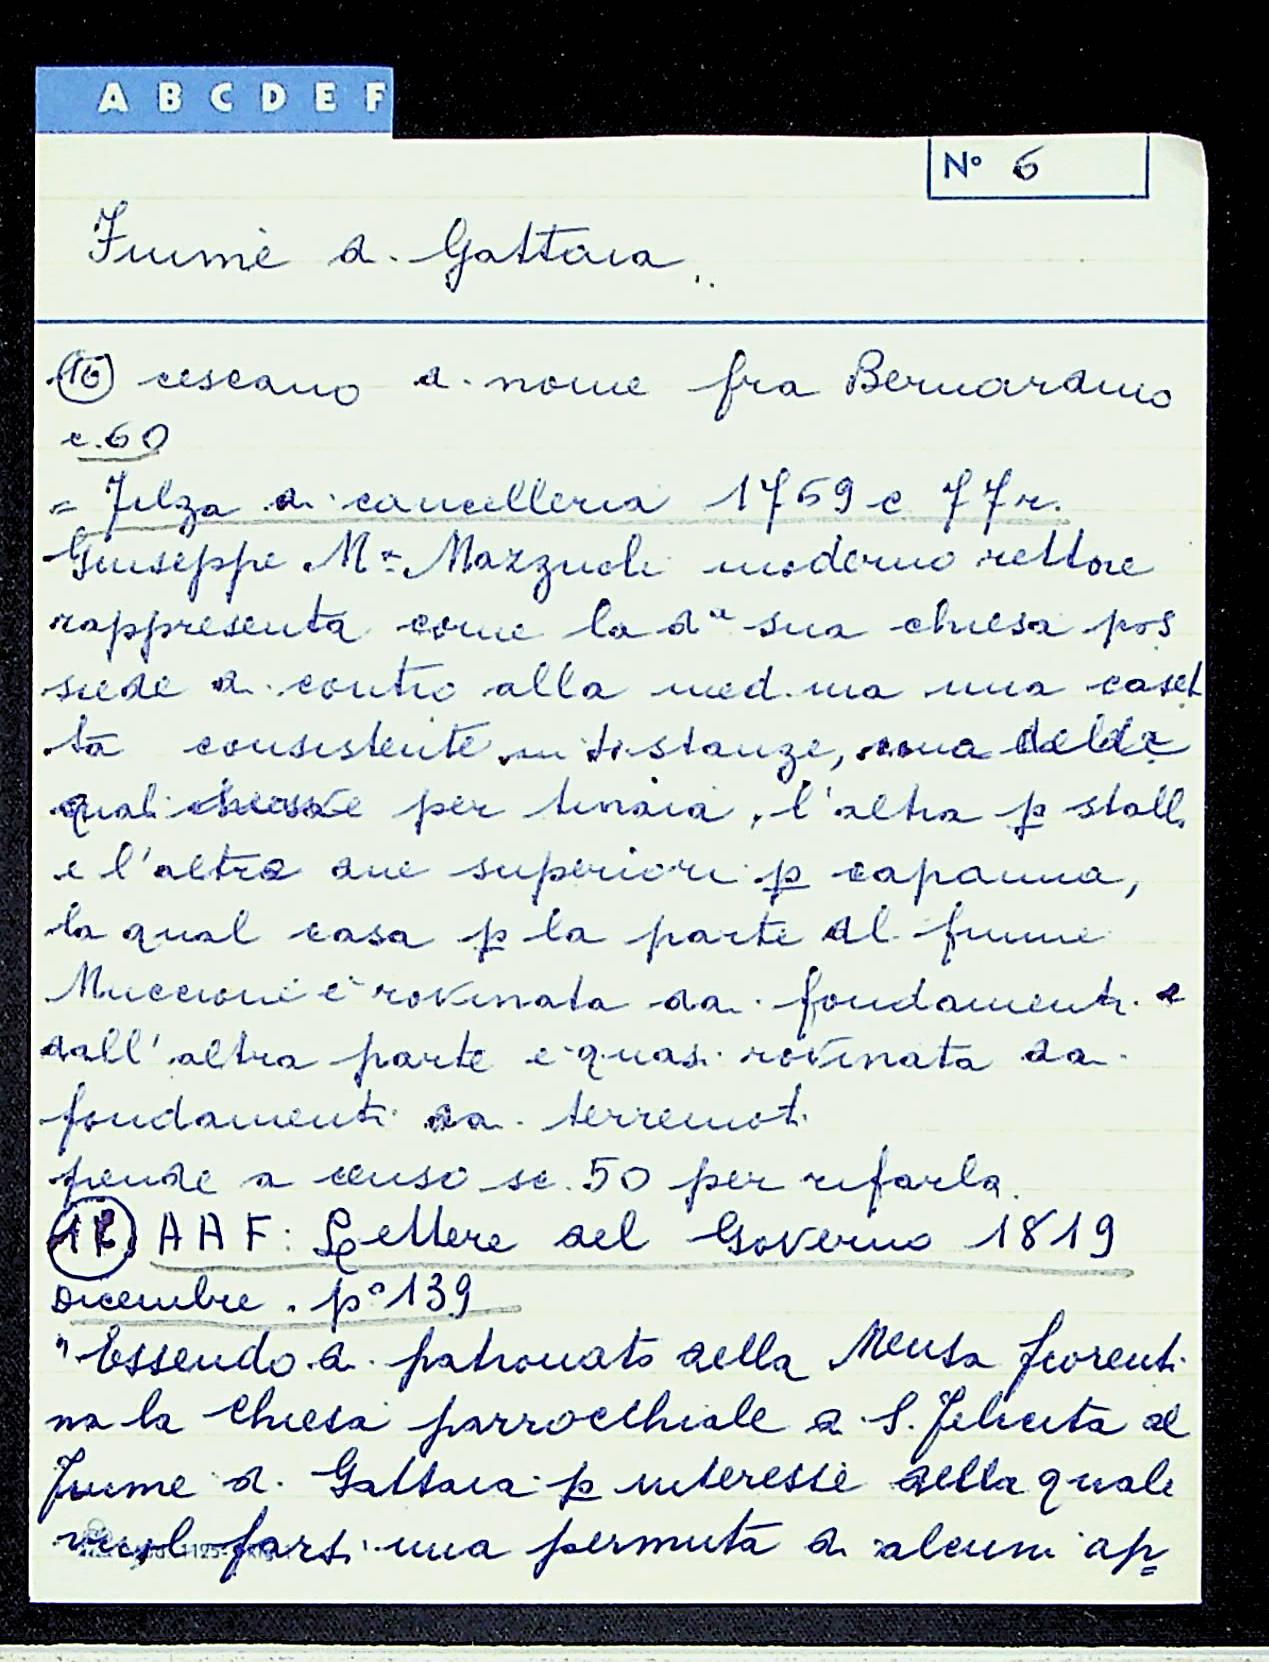 A B C D E F
N° 6
Fiume di Gattaia
(16) cescano di nome fra Bernardino
c. 60
= Filza di cancelleria 1759 c 77r.
Giuseppe M.a Mazzuoli moderno rettore
rappresenta come la d.a sua chiesa pos
siede di contro alla med.ma una caset
ta consistente in stanze, una delle
quali per tinaia, l'altra p stalla
e l'altre due superiori p capanna,
la qual casa p la parte del fiume
Muccione è rovinata dai fondamenti e
dall'altra parte è quasi rovinata dai
fondamenti dai terremoti
prende a censo sc. 50 per rifarla.
AAF: Lettere del Governo 1819
Dicembre. p° 139
"Essendo di patronato della Mensa fiorenti
na la Chiesa parrocchiale di S. Felicita al
Fiume di Gattaia p interesse della quale
vuol farsi una permuta di alcuni ap